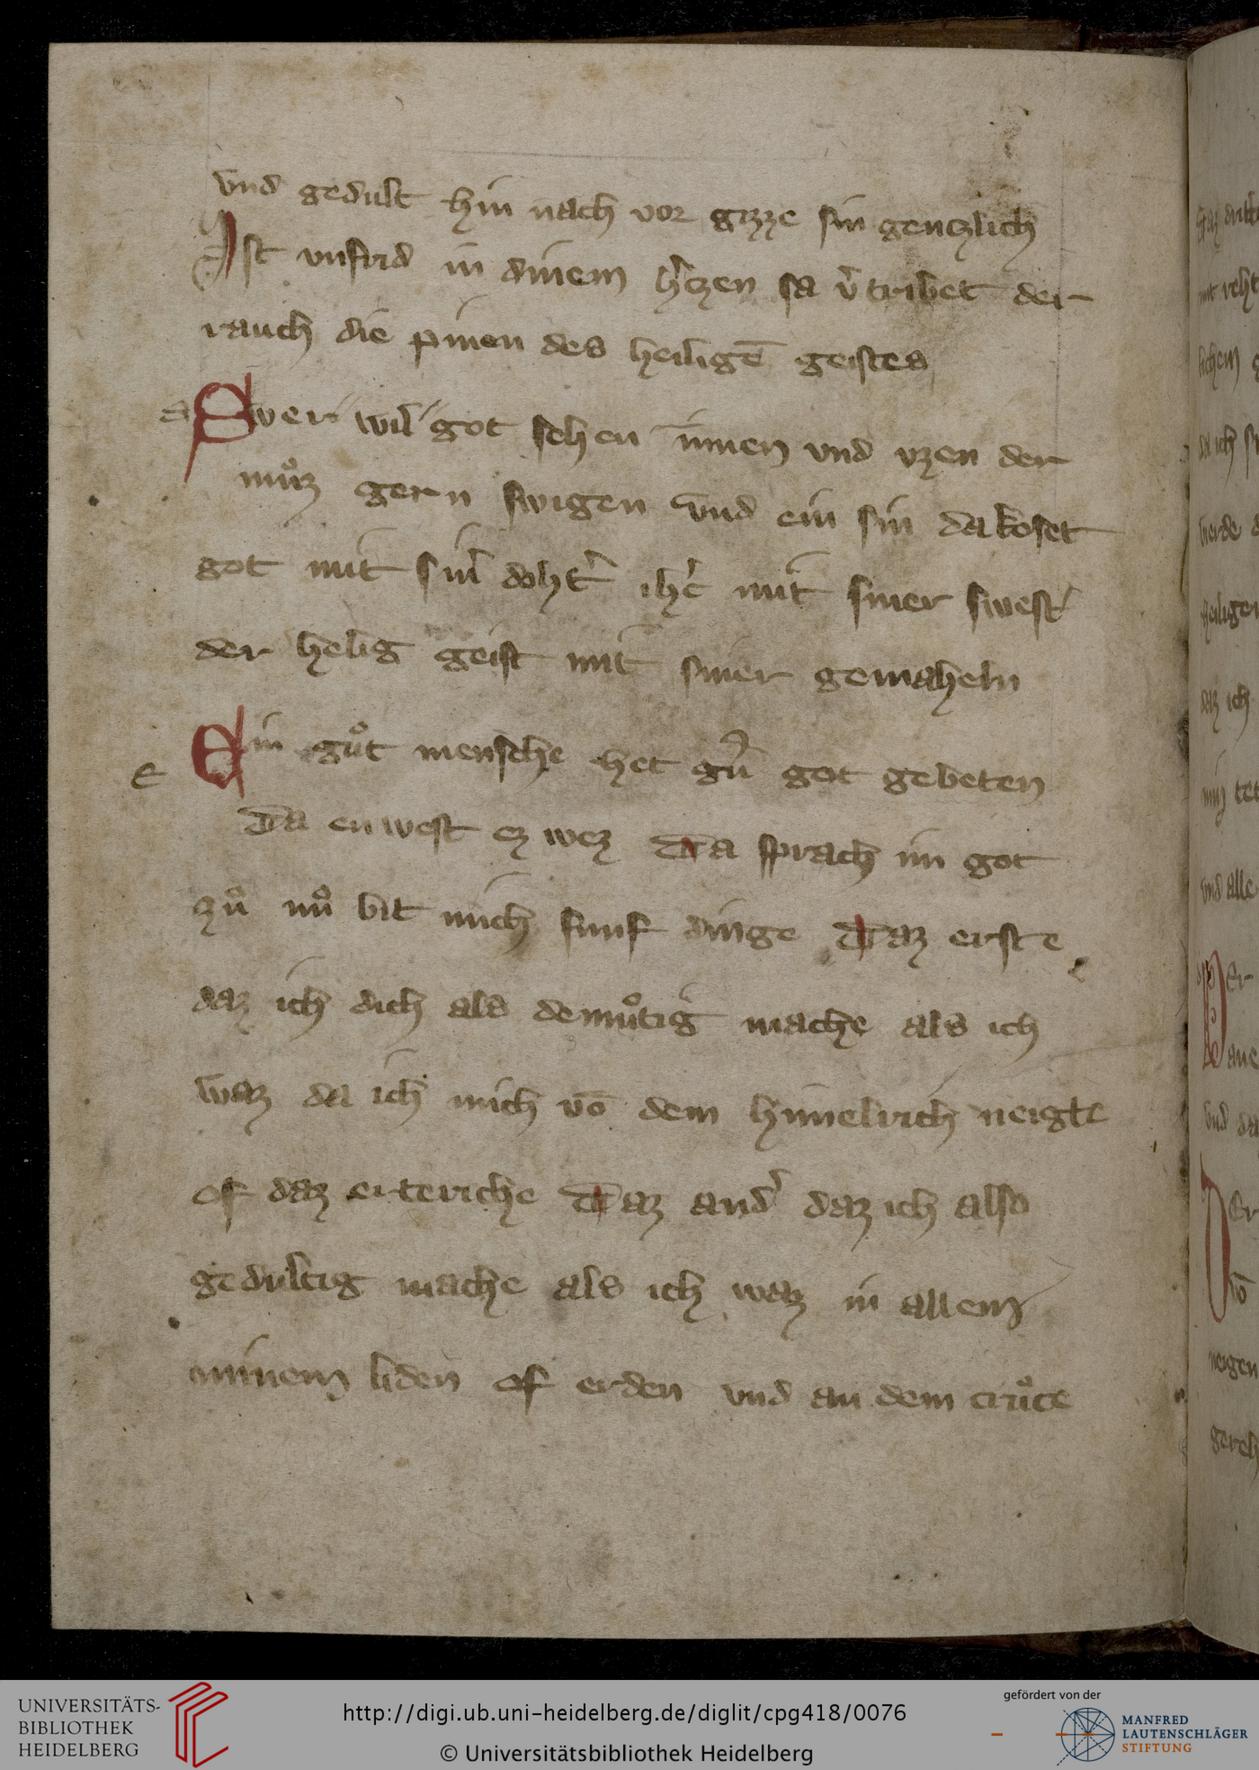 vnd gedult hin nach vor gizze sin genczlich
Ist vnfrid in dinem h'czen sa v'tribet der
rauch die pinen des heiligē geistes
Swer wil got sehen innen vnd vzen der
muͦz gern swigen vnd ein sin da koset
got mit sin' doht' ihc' mit siner swest'
der helig geist mit siner gemaheln
e Ein guͦt mensche het gn̄ got gebeten
Da en west ez wez Da sprach im got
zuͦ nuͦ bit mich funf dinge Daz erste
daz ich dich als demuͦtig mache als ich
waz da ich mich vō dem himelrich neigte
of daz erteriche Daz and' daz ich also
gedultig mache als ich waz in allem
minem liden of erden vnd an dem cruͦce
UNIVERSITÄTS-
BIBLIOTHEK
HEIDELBERG
http://digi.ub.uni-heidelberg.de/diglit/cpg418/0076
© Universitätsbibliothek Heidelberg
gefördert von der
MANFRED
LAUTENSCHLÄGER
STIFTUNG